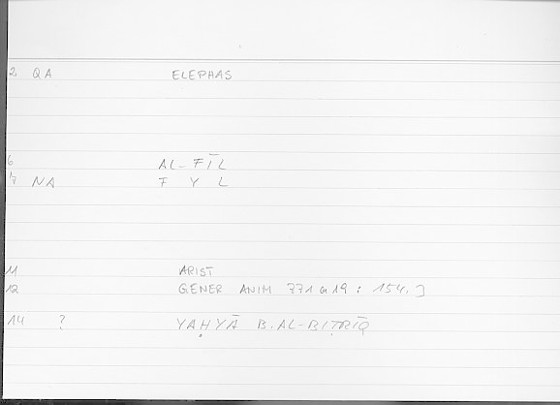 2 QA ELEPHAS
6 AL-FĪL
7 NA F Y L
11 ARIST
12 GENER ANIM 771 a 19 : 154,
14 ? YAḤYĀ B. AL-BIṬRĪQ